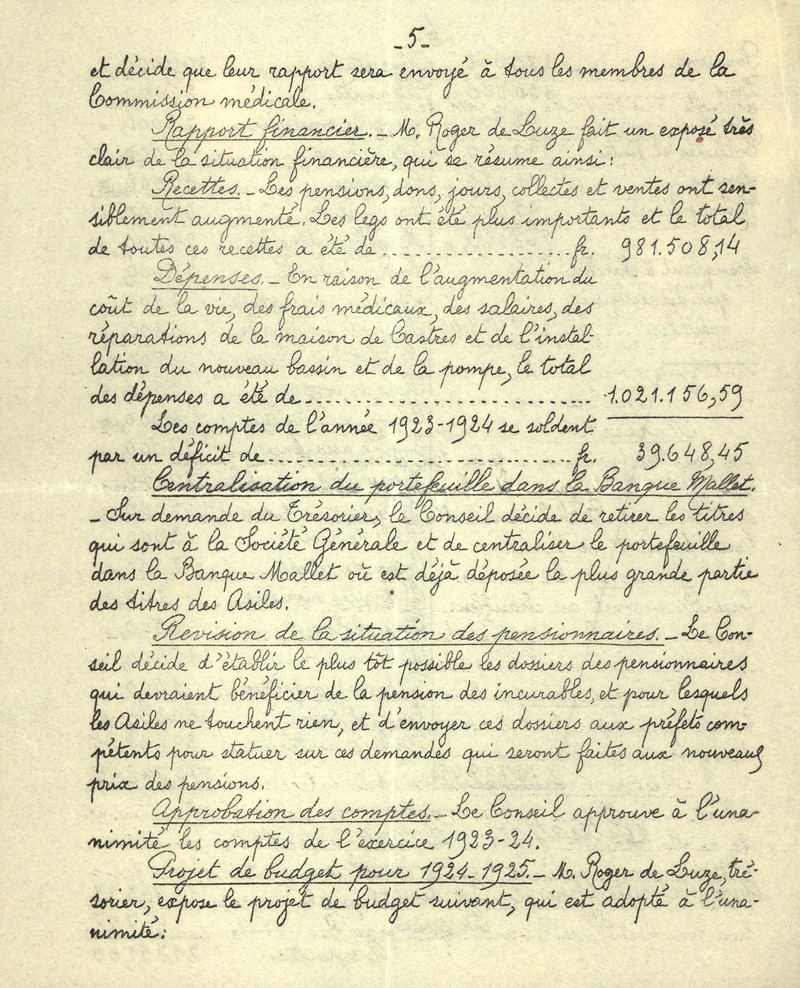 -5-
et décide que leur rapport sera envoyé à tous les membres de la
Commission médicale.
Rapport financier. - M. Roger de Luze fait un exposé très
clair de la situation financière, qui se résume ainsi :
Recettes. - Les pensions, dons, jours, collectes et ventes ont sen-
siblement augmenté. Les legs ont été plus importants et le total
de toutes ces recettes a été de .................... fr. 981.508,14
Dépenses. - En raison de l'augmentation du
coût de la vie, des frais médicaux, des salaires, des
réparations de la maison de Castres et de l'instal-
lation du nouveau bassin et de la pompe, le total
des dépenses a été de .............................. 1.021.156,59
Les comptes de l'année 1923-1924 se soldent
par un déficit de .................................. fr. 39.648,45
Centralisation du portefeuille dans la Banque Mallet.
- Sur demande du Trésorier, le Conseil décide de retirer les titres
qui sont à la Société Générale et de centraliser le portefeuille
dans la Banque Mallet où est déjà déposée la plus grande partie
des titres des Asiles.
Revision de la situation des pensionnaires. - Le Con-
seil décide d'établir le plus tôt possible les dossiers des pensionnaires
qui devraient bénéficier de la pension des incurables, et pour lesquels
les Asiles ne touchent rien, et d'envoyer ces dossiers aux préfets com-
pétents pour statuer sur ces demandes qui seront faites aux nouveaux
prix des pensions.
Approbation des comptes. - Le Conseil approuve à l'una-
nimité les comptes de l'exercice 1923-24.
Projet de budget pour 1924-1925. - M. Roger de Luze, tré-
sorier, expose le projet de budget suivant, qui est adopté à l'una-
nimité :